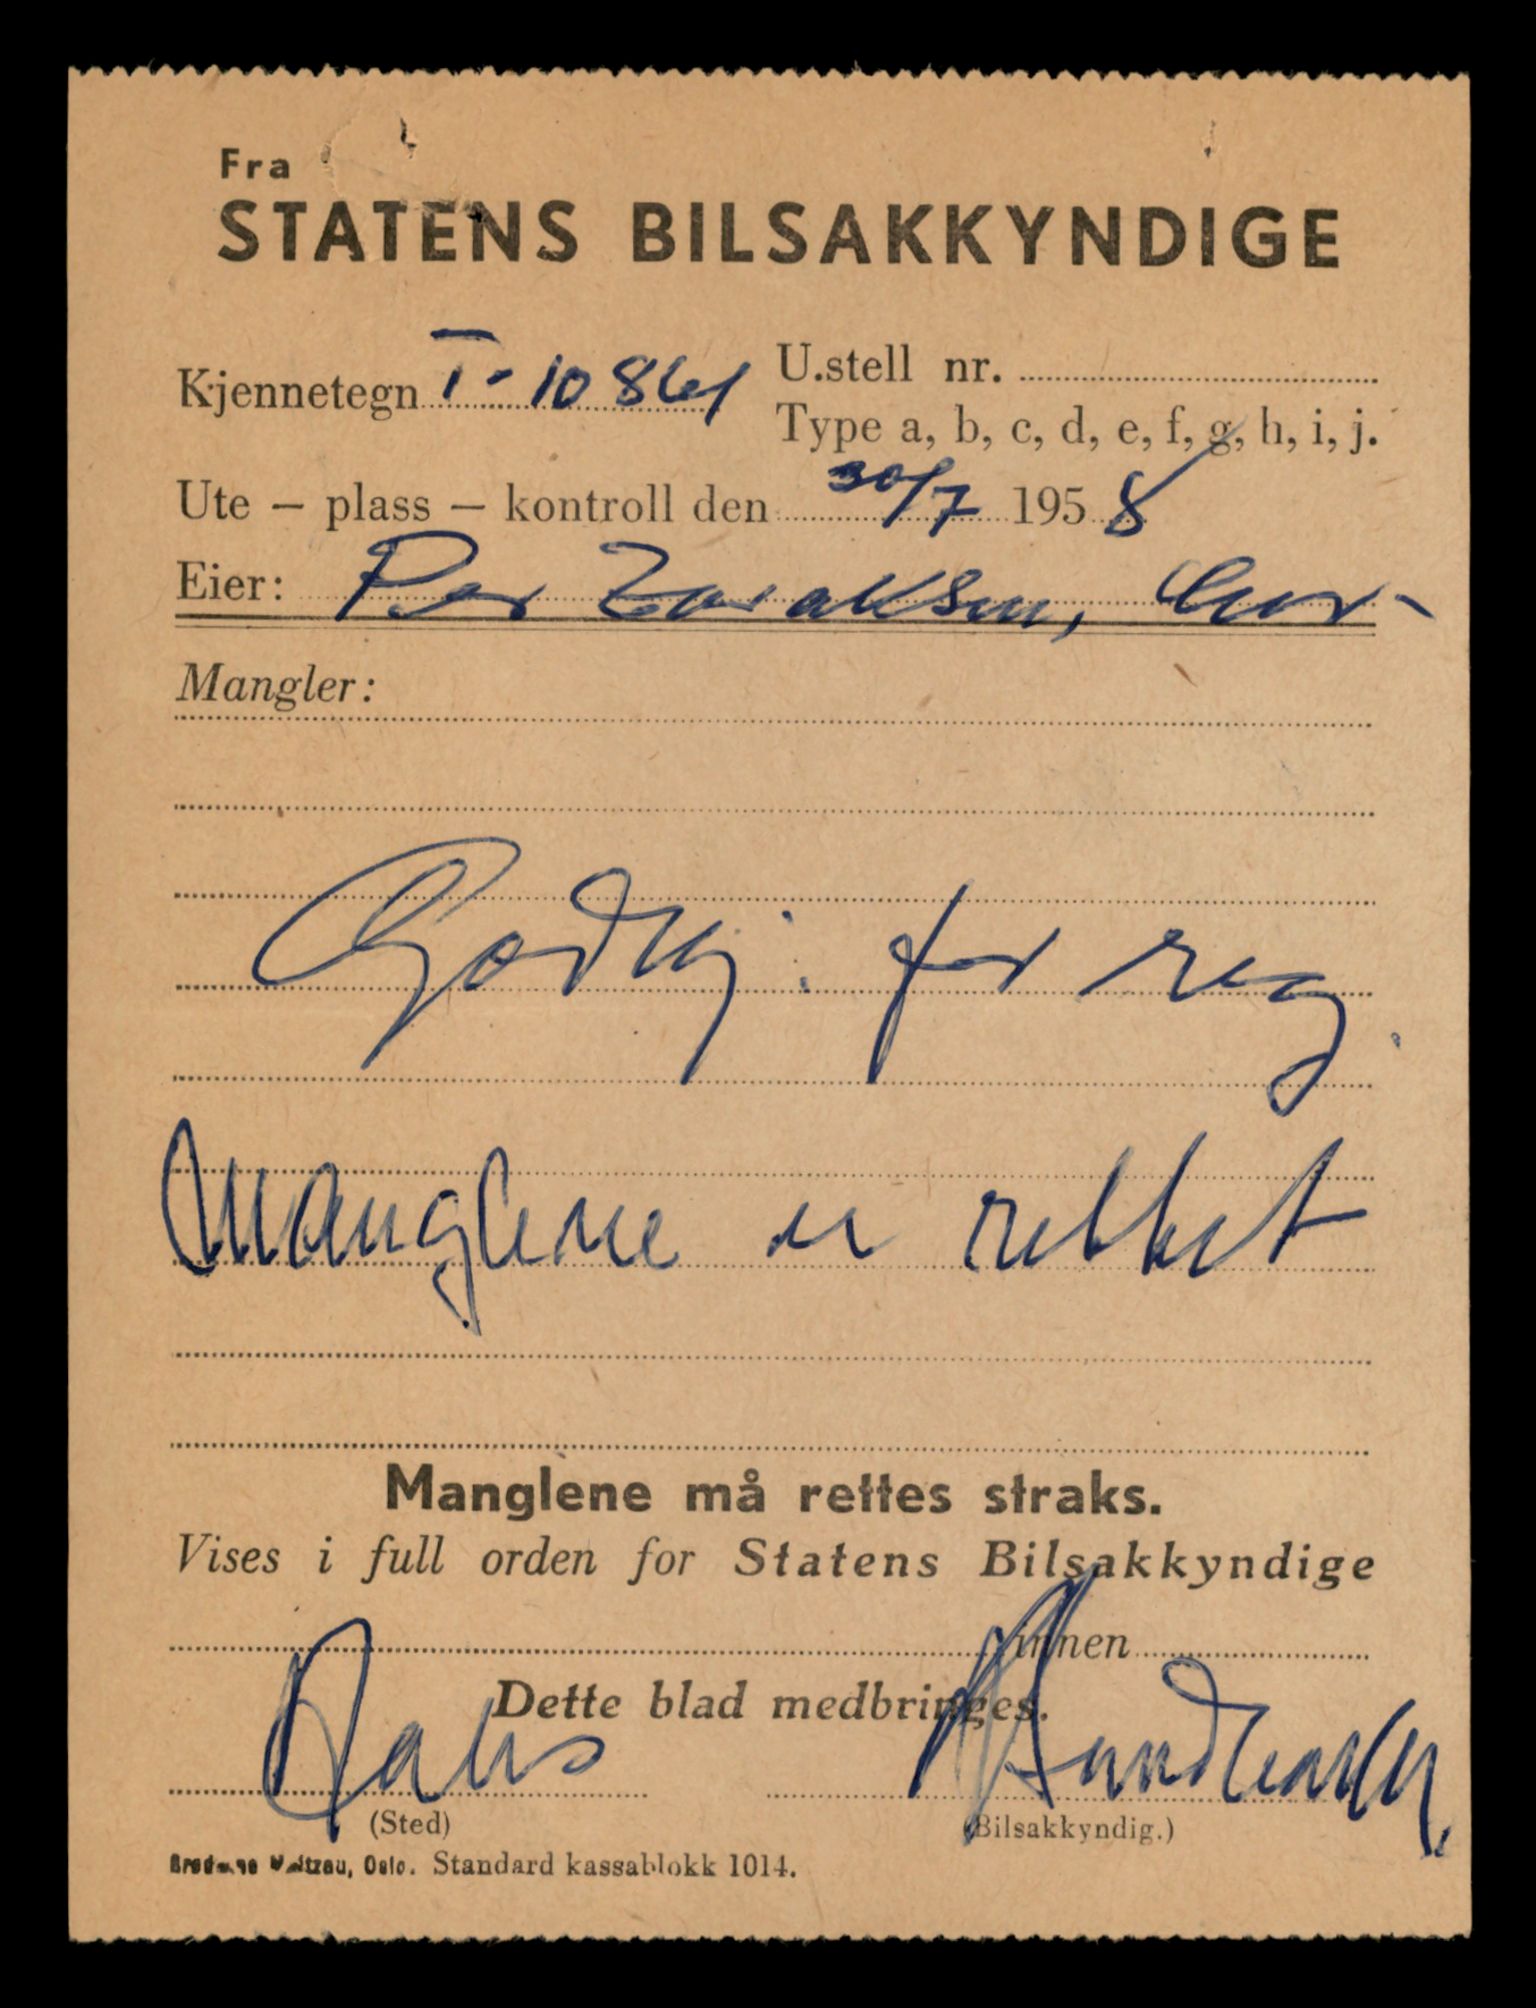 Fra
STATENS BILSAKKYNDIGE
Kjennetegn T-10861 U.stell nr.
Type a, b, c, d, e, f, g, h, i, j.
Ute – plass – kontroll den 30/7 1958
Eier: Per
Mangler:
Godkj. for reg.
Manglene er rettet
Manglene må rettes straks.
Vises i full orden for Statens Bilsakkyndige
innen
Dette blad medbringes.
(Sted) (Bilsakkyndig.)
Oslo. Standard kassablokk 1014.